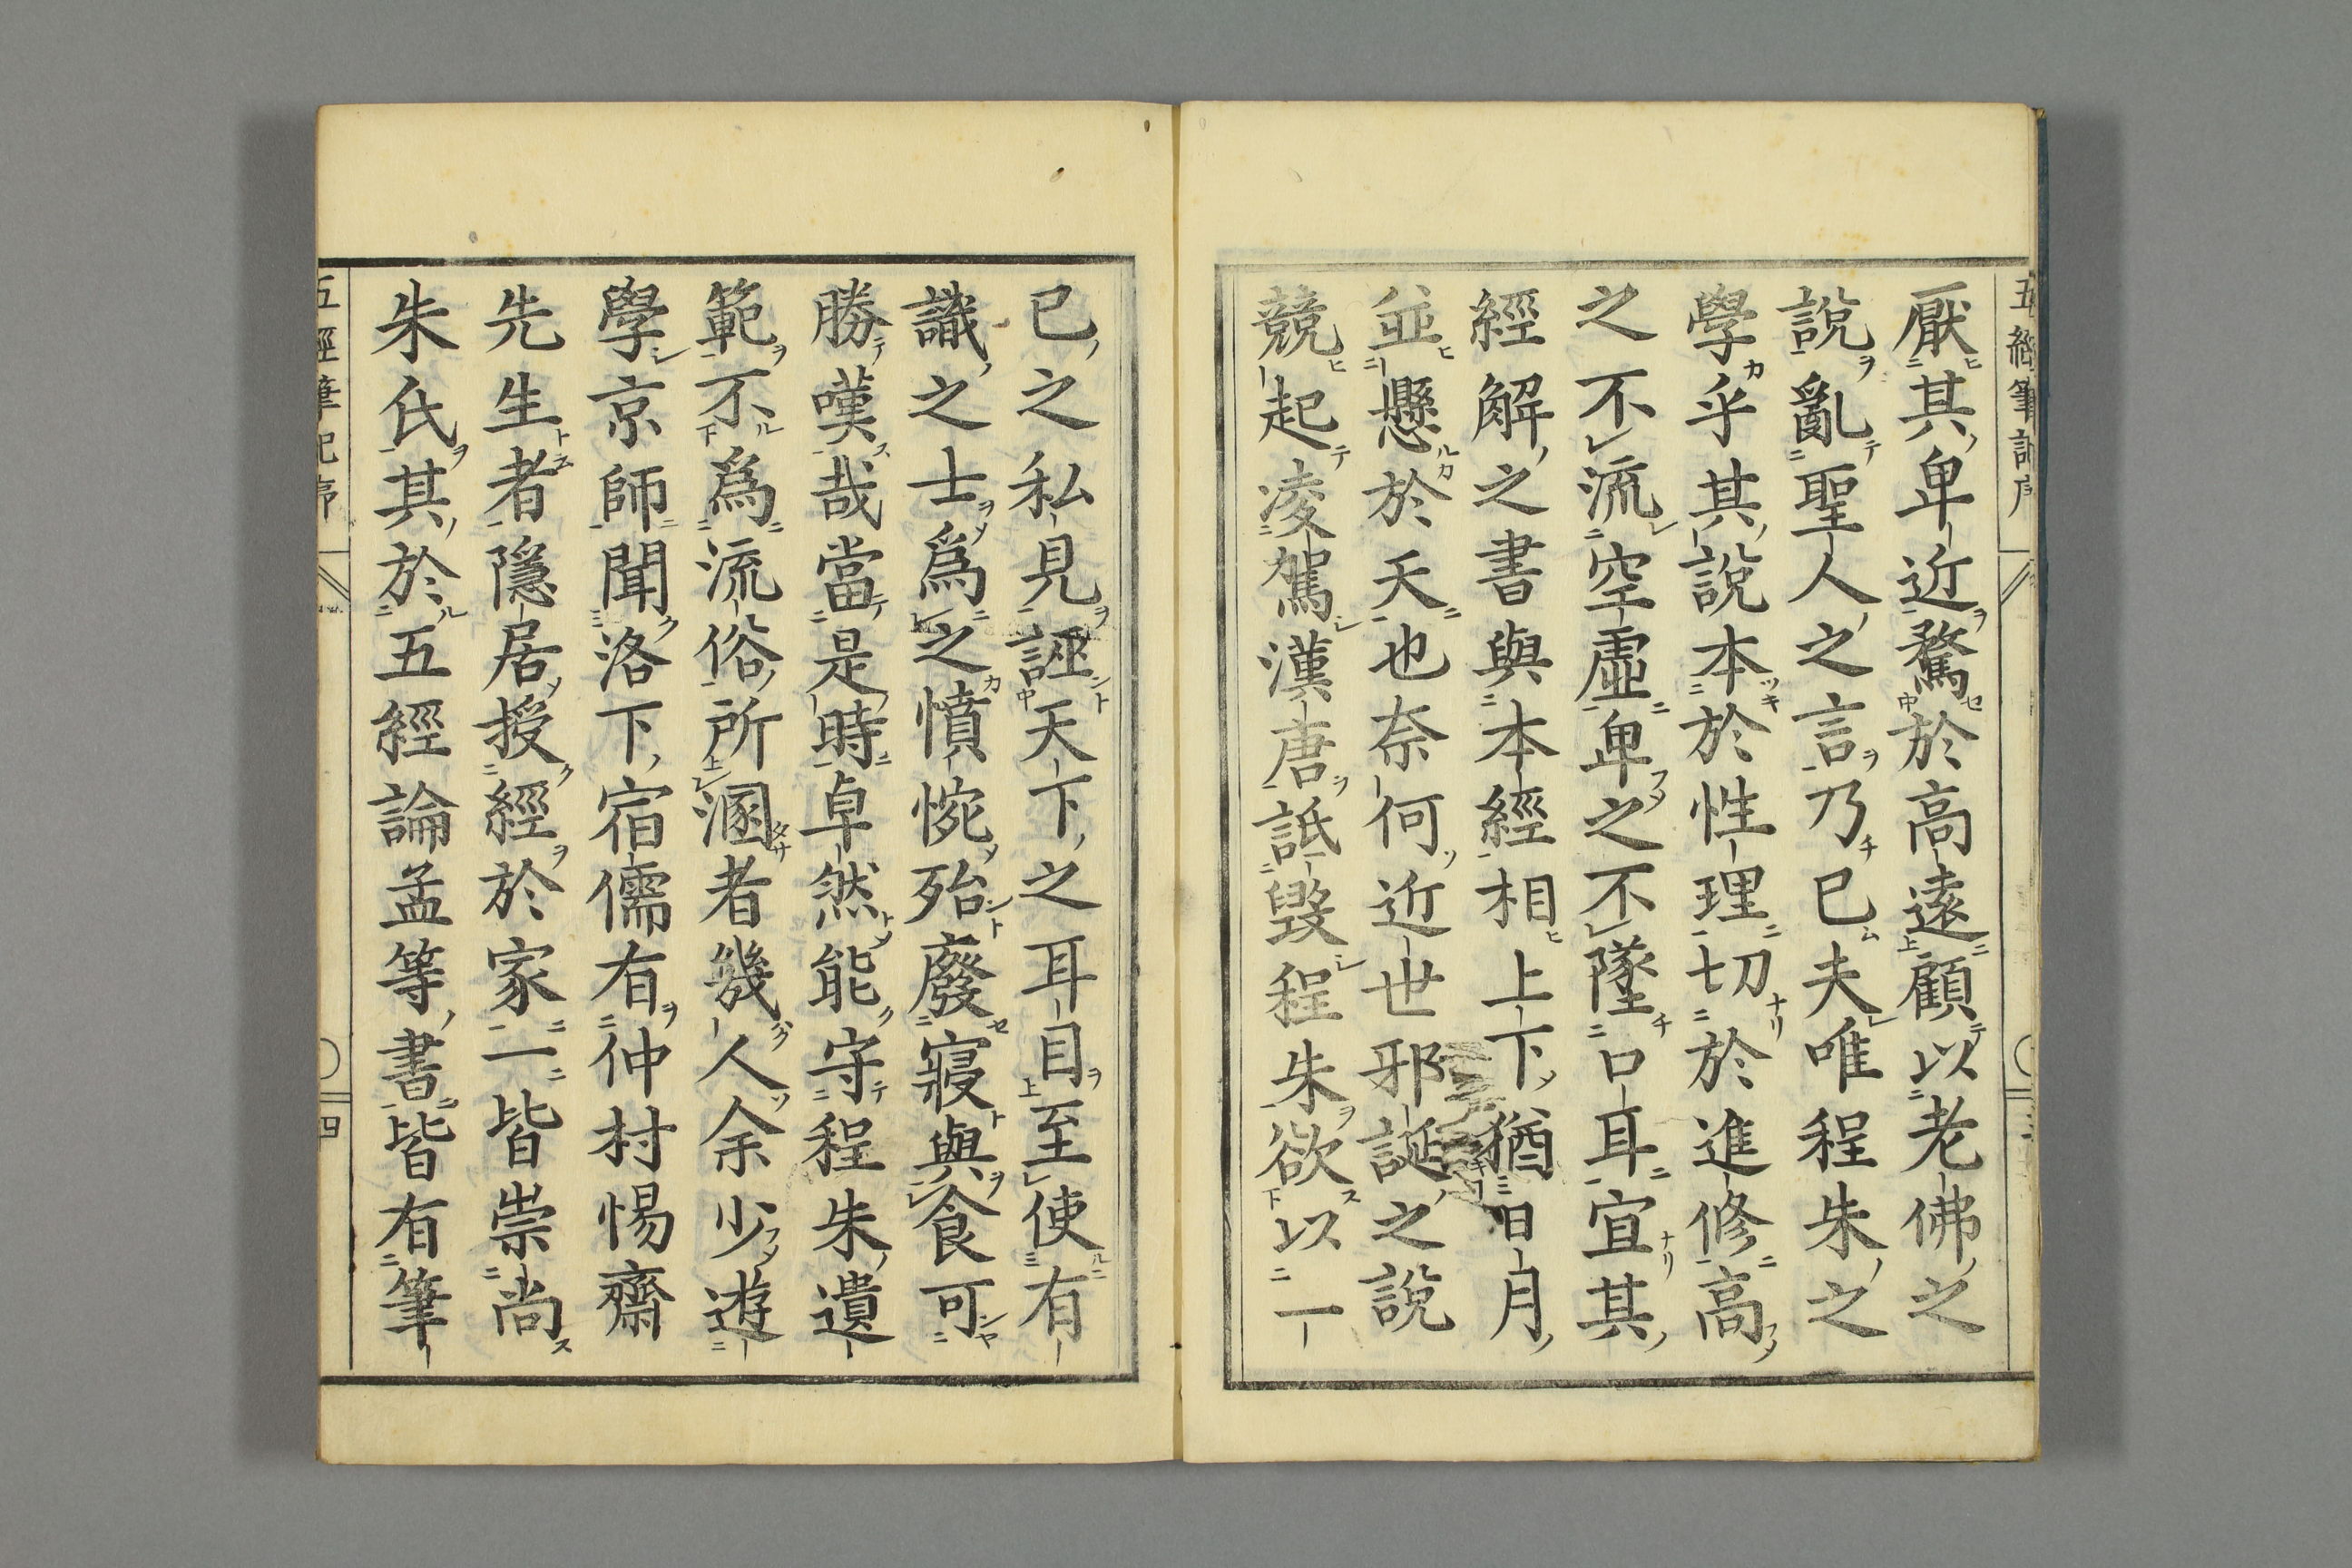 五經筆記序
厭其卑近騖於高遠顧以老佛之
說亂聖人之言乃已夫唯程朱之
學乎其說本於性理切於進修高
之不流空虛卑之不墜口耳宜其
經解之書與本經相上下猶日月
並懸於天也奈何近世邪誕之說
競起凌駕漢唐詆毀程朱欲以一
已之私見誣天下之耳目至使有
識之士爲之憤惋殆廢寢與食可
勝嘆哉當是時卓然能守程朱遺
範不爲流俗所溷者幾人余少遊
學京師聞洛下宿儒有仲村惕齋
先生者隱居授經於家一皆崇尚
朱氏其於五經論孟等書皆有筆
五經筆記序 四